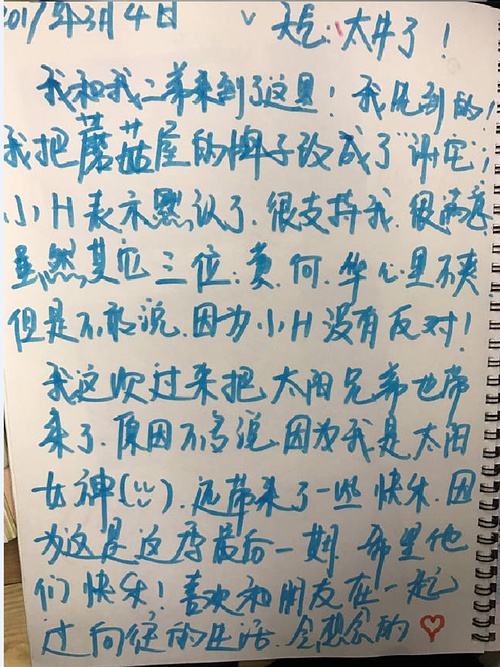 2017年3月4日 天气:太井了!
我和我二弟来到了这里!我见到的!
我把蘑菇屋的牌子改成了"谢宅"!
小H表示默认了.很支持我.很满意
虽然其他三位.黄.何.华心里不爽
但是不敢说.因为小H没有反对!
我这次过来把太阳兄弟也带
来了.原因不多说.因为我是太阳
女神(ü).还带来了一些快乐.因
为这是这季最后一期.希望他
们快乐!喜欢和朋友在一起
过向往的生活.会想念的♡